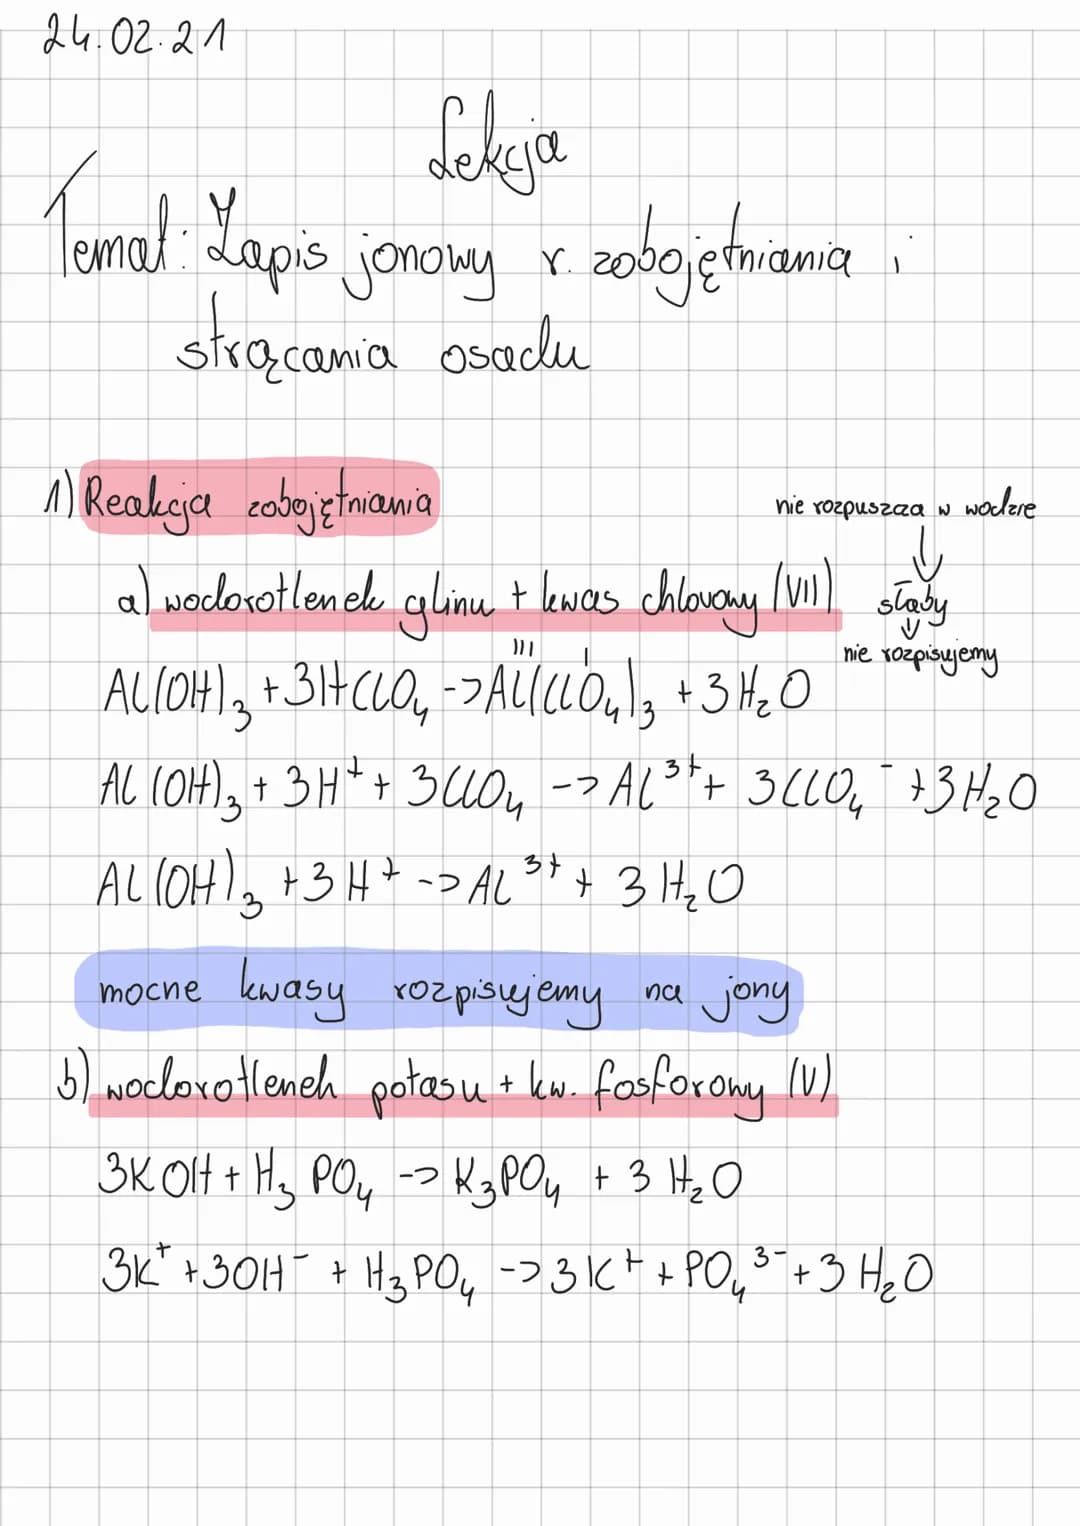 24.02.21
Lekcja
Temat: Zapis jonowy r. zobojętniania i
strącania osadu
1) Reakcja zobojętniania
nie rozpuszcza w wodzie
↓
a) wodorotlenek glinu + kwas chlorowy (VII)
słaby
↓
nie rozpisujemy
III I
Al(OH)₃ + 3HClO₄ -> Al(ClO₄)₃ + 3H₂O
Al(OH)₃ + 3H⁺ + 3ClO₄ -> Al³⁺ + 3ClO₄⁻ + 3H₂O
Al(OH)₃ + 3H⁺ -> Al³⁺ + 3H₂O
mocne kwasy rozpisujemy na jony
b) wodorotlenek potasu + kw. fosforowy (V)
3KOH + H₃PO₄ -> K₃PO₄ + 3H₂O
3K⁺ + 3OH⁻ + H₃PO₄ -> 3K⁺ + PO₄³⁻ + 3H₂O